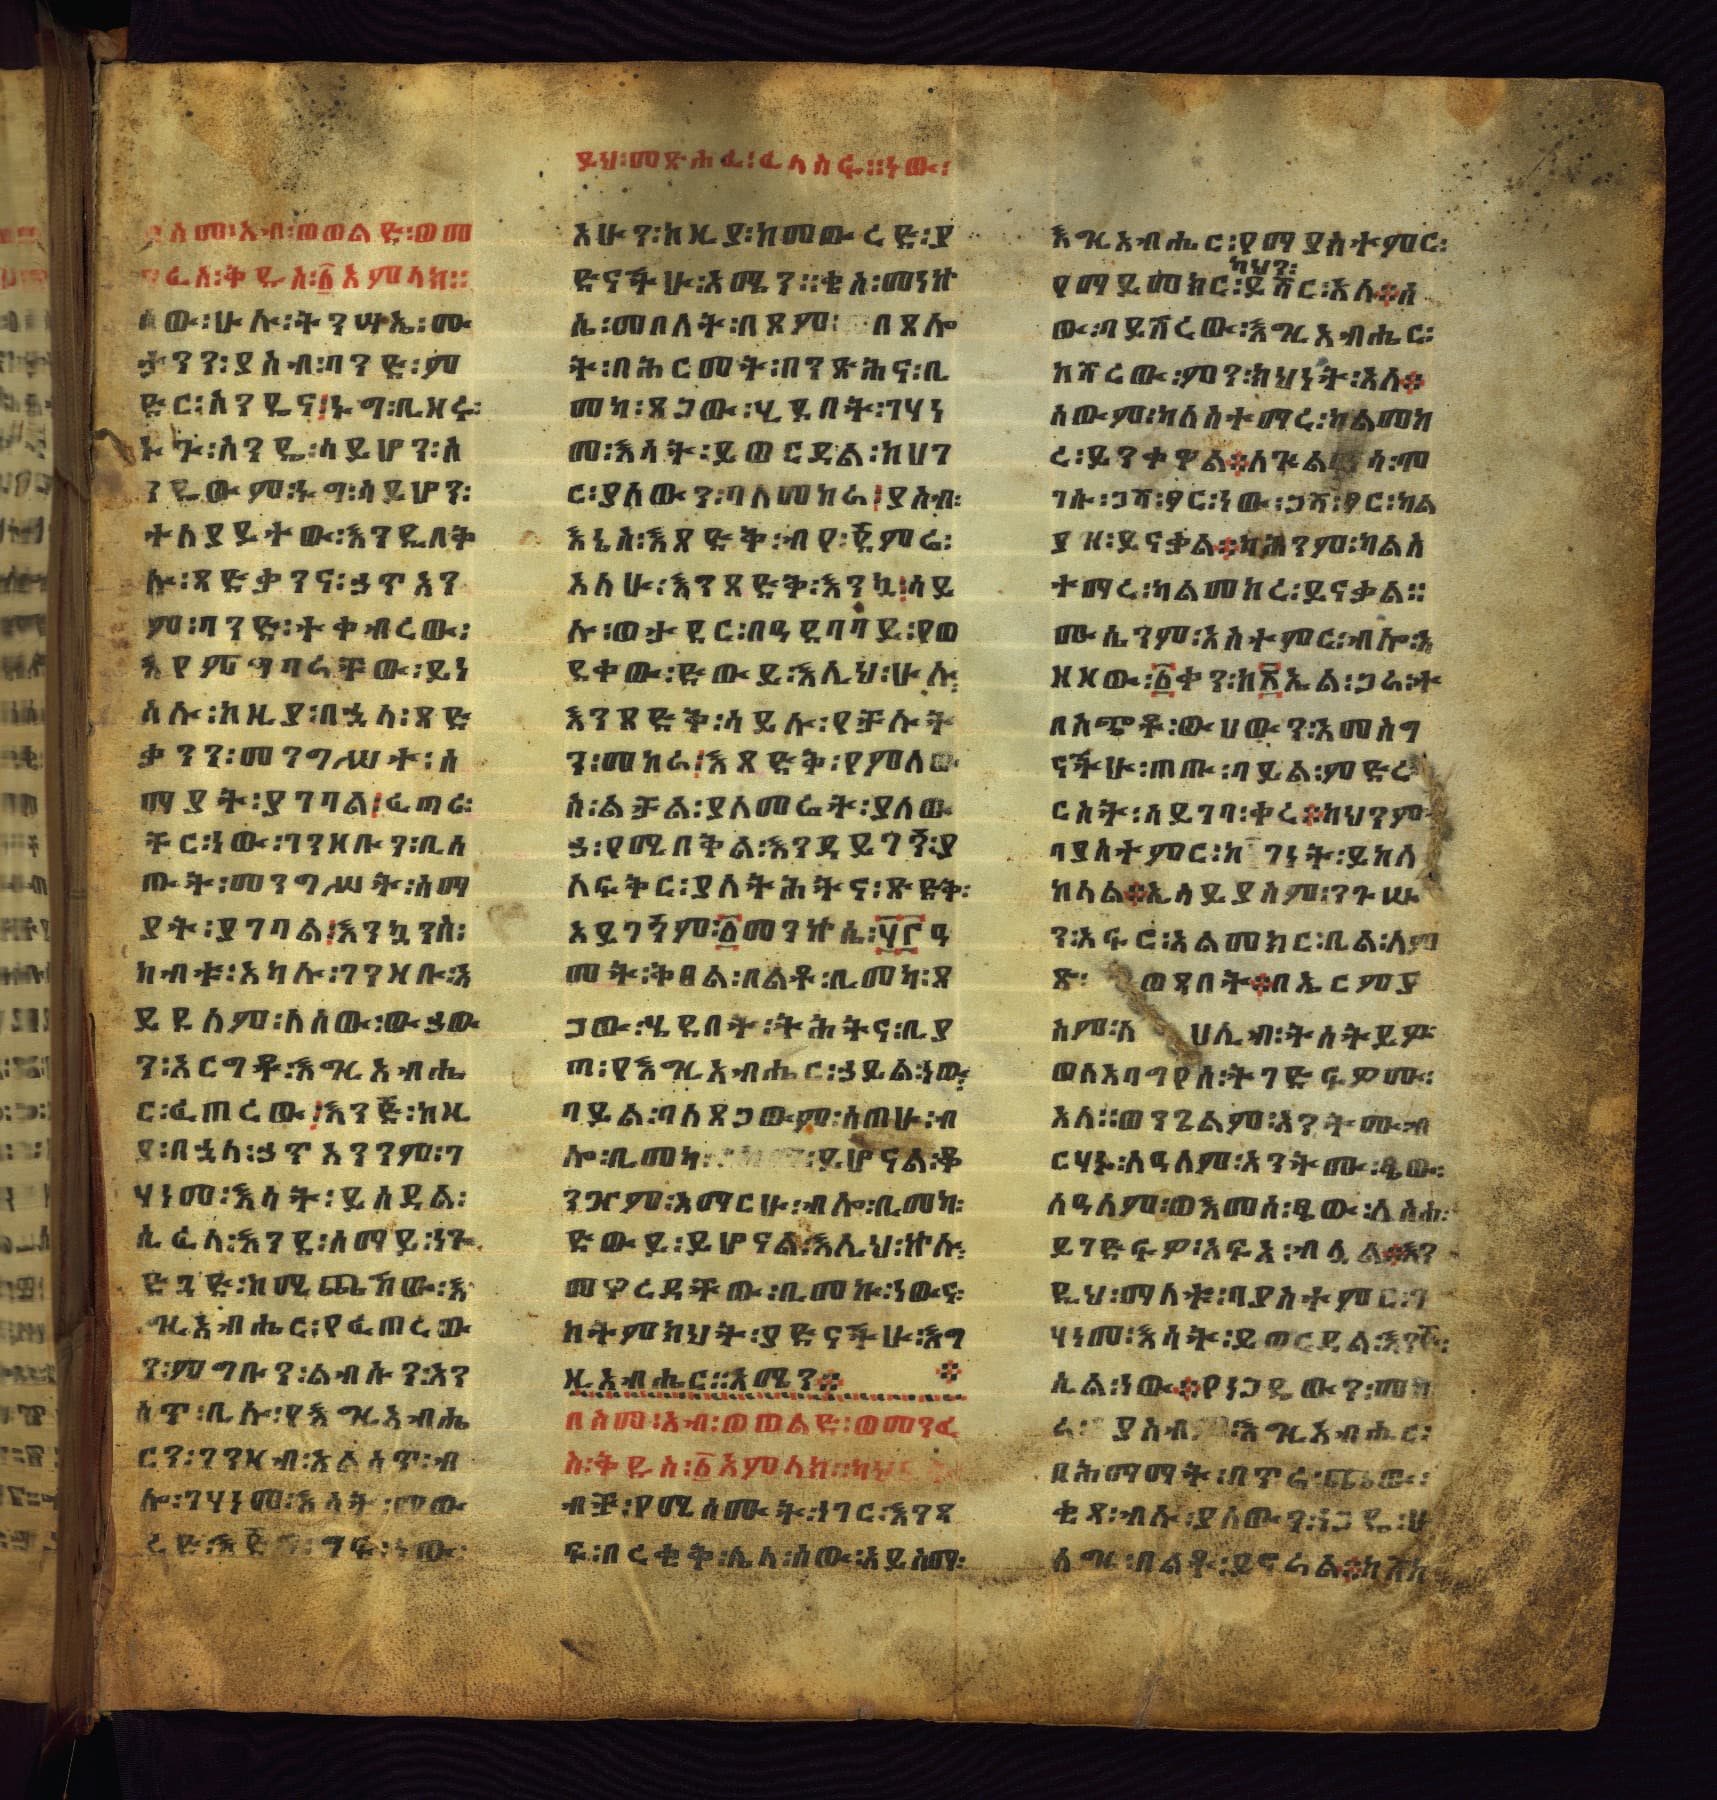 ይህ፡መጽሐፈ፡ፈላስፋ፡፡ነው፡
በስመ፡አብ፡ወወልድ፡ወመ
ንፈስ፡ቅዱስ፡፩አምላክ፡፡
ሰው፡ሁሉ፡ትንሣኤ፡ሙ
ታንን፡ያስብ፡ባንድ፡ም
ድር፡ስንዴና፡ኑግ፡ቢዘሩ፡
ኑጉ፡ስንዴ፡ላይሆን፡ስ
ንዴውም፡ኑግ፡ላይሆን፡
ተለያይተው፡እንዲበቅ
ሉ፡ጻድቃንና፡ኃጥአን
ም፡ባንድ፡ተቀብረው፡
እየምግባራቸው፡ይነ
ሰሉ፡ከዚያ፡በኋላ፡ጻድ
ቃንን፡መንግሥተ፡ሰ
ማያት፡ያገባል፡ፈጣሪ፡
ቸር፡ነው፡ገንዘቡን፡ቢሰ
ጡት፡መንግሥተ፡ሰማ
ያት፡ያገባል፡እንኳንስ፡
ከብቱ፡አካሉ፡ገንዘቡ፡አ
ይደለም፡ለሰው፡ውኃው
ን፡አርግቶ፡እግዚአብሔ
ር፡ፈጠረው፡እንጅ፡ከዚ
ያ፡በኋላ፡ኃጥአንንም፡ገ
ሃነመ፡እሳት፡ይሰዳል፡
ሲፈላ፡እንደ፡ሰማይ፡ነጐ
ድጓድ፡ከሚጮኸው፡እ
ግዚአብሔር፡የፈጠረው
ን፡ምግቡን፡ልብሱን፡እን
ስጥ፡ቢሉ፡የእግዚአብሔ
ርን፡ገንዘብ፡አልሰጥ፡ብ
ሎ፡ገሃነመ፡እሳት፡መው
ረድ፡እጅግ፡ግፍ፡ነው፡
እሁን፡ከዚያ፡ከመውረድ፡ያ
ድናችሁ፡አሜን፡፡ቄስ፡መነኵ
ሲ፡መበለት፡በጾም፡በጸሎ
ት፡በሕርመት፡በንጽሕና፡ቢ
መካ፡ጸጋው፡ሂዶበት፡ገሃነ
መ፡እሳት፡ይወርዳል፡ከሀገ
ር፡ያለውን፡ባለመከራ፡ያስብ፡
እኔስ፡እጸድቅ፡ብየ፡ጀምሬ፡
አለሁ፡እንጸድቅ፡እንኳ፡ላይ
ሉ፡ወታደር፡በዓደባባይ፡የወ
ደቀው፡ድውይ፡እሊህ፡ሁሉ፡
እንጸድቅ፡ላይሉ፡የቻሉት
ን፡መከራ፡እጸድቅ፡የምለው
ስ፡ልቻል፡ያለመሬት፡ያለው
ኃ፡የሚበቅል፡እንዳይገኝ፡ያ
ለፍቅር፡ያለትሕትና፡ጽድቅ፡
አይገኝም፡፩መንኵሴ፡፵፫ዓ
መት፡ቅፀል፡በልቶ፡ቢመካ፡ጸ
ጋው፡ሄደበት፡ትሕትና፡ቢያ
ጣ፡የእግዚአብሔር፡ኃይል፡ነው፡
ባይል፡ባለጸጋውም፡ሰጠሁ፡ብ
ሎ፡ቢመካ፡ይሆናል፡ቆ
ንጆም፡አማርሁ፡ብሎ፡ቢመካ፡
ድውይ፡ይሆናል፡እሊህ፡ኵሉ፡
መዋረዳቸው፡ቢመኩ፡ነውና፡
ከትምክህት፡ያድናችሁ፡እግ
ዚአብሔር፡፡አሜን፨
በስመ፡አብ፡ወወልድ፡ወመንፈ
ስ፡ቅዱስ፡፩አምላክ፡፡ካህ
ብቻ፡የሚሰሙት፡ነገር፡እንጻ
ፍ፡በረቂቅ፡ሌላ፡ሰው፡አይስማ፡
እግዚአብሔር፡የማያስተምር፡
ካህን፡
የማይመክር፡ይሻር፡አለ፨ሰ
ው፡ባይሽረው፡እግዚአብሔር፡
ከሻረው፡ምን፡ክህነት፡አለ፨
ሰውም፡ካለአስተማረ፡ካልመከ
ረ፡ይንቀዋል፨ለጕልማሳ፡መ
ገሉ፡ጋሻ፡ፆር፡ነው፡ጋሻ፡ፆር፡ካል
ያዘ፡ይናቃል፨ካሕንም፡ካልአስ
ተማረ፡ካልመከረ፡ይናቃል፡፡
ሙሴንም፡አስተምር፡ብሎ፡አ
ዘዘው፡፩ቀን፡ከ፳ኤል፡ጋራ፡ት
በአጭቶ፡ውሀውን፡አመስግ
ናችሁ፡ጠጡ፡ባይል፡ምድረ
ርስት፡ሳይገባ፡ቀረ፨ካህንም
ባያስተምር፡ከገነት፡ይከለ
ከላል፨ኢሳይያስም፡ንጉሡ
ን፡አፍሮ፡አልመክር፡ቢል፡ለም
ጽ፡ወጻበት፨በኤርምያ
ስም፡አሀሊብ፡ትሰትይም
ወለአባግየሰ፡ትገድፍዎሙ፡
አለ፡፡ወንጌልም፡አንትሙ፡ብ
ርሃኑ፡ለዓለም፡አንትሙ፡ፄው፡
ለዓለም፡ወእመሰ፡ፄው፡ለስሐ፡
ይገድፍዎ፡አፍአ፡ብሏል፨እን
ዲህ፡ማለቱ፡ባያስተምር፡ገ
ሃነመ፡እሳት፡ይወርዳል፡እንጅ፡
ሲል፡ነው፨የነጋዴውን፡መከ
ራ፡ያስብ፡እግዚአብሔር፡
በሕማማት፡በጥሬ፡ጨው፡
ቂጻ፡ብሉ፡ያለውን፡ነጋዴ፡ሁ
ልጊዜ፡በልቶ፡ይኖራል፨ከሻከ